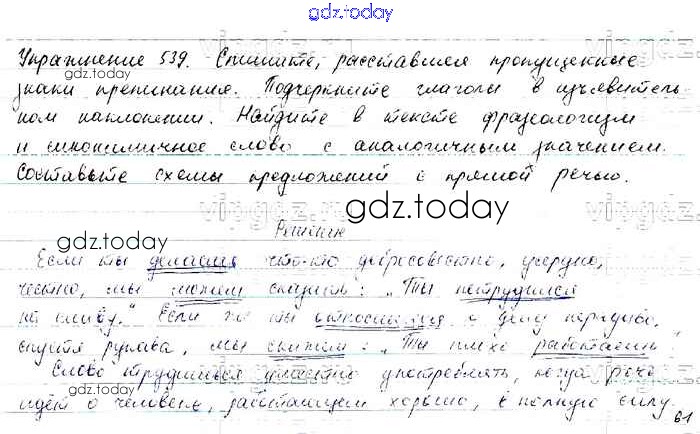 gdz.today
Упражнение 539. Спишите, расставляя пропущенные
gdz.today
знаки препинания. Подчеркните глаголы в изъявитель-
ном наклонении. Найдите в тексте фразеологизм
и синонимичное слово с аналогичным значением.
Составьте схемы предложений с прямой речью.
gdz.today
gdz.today
Решение
Если ты делаешь что-то добросовестно, усердно,
честно, мы можем сказать: „Ты потрудился
на славу." Если же ты относишься к делу нерадиво,
спустя рукава, мы скажем: „Ты плохо работаешь".
gdz.today
Слово трудишься уместно употреблять, когда речь
идёт о человеке, работающем хорошо, в полную силу.
gdz.today
61